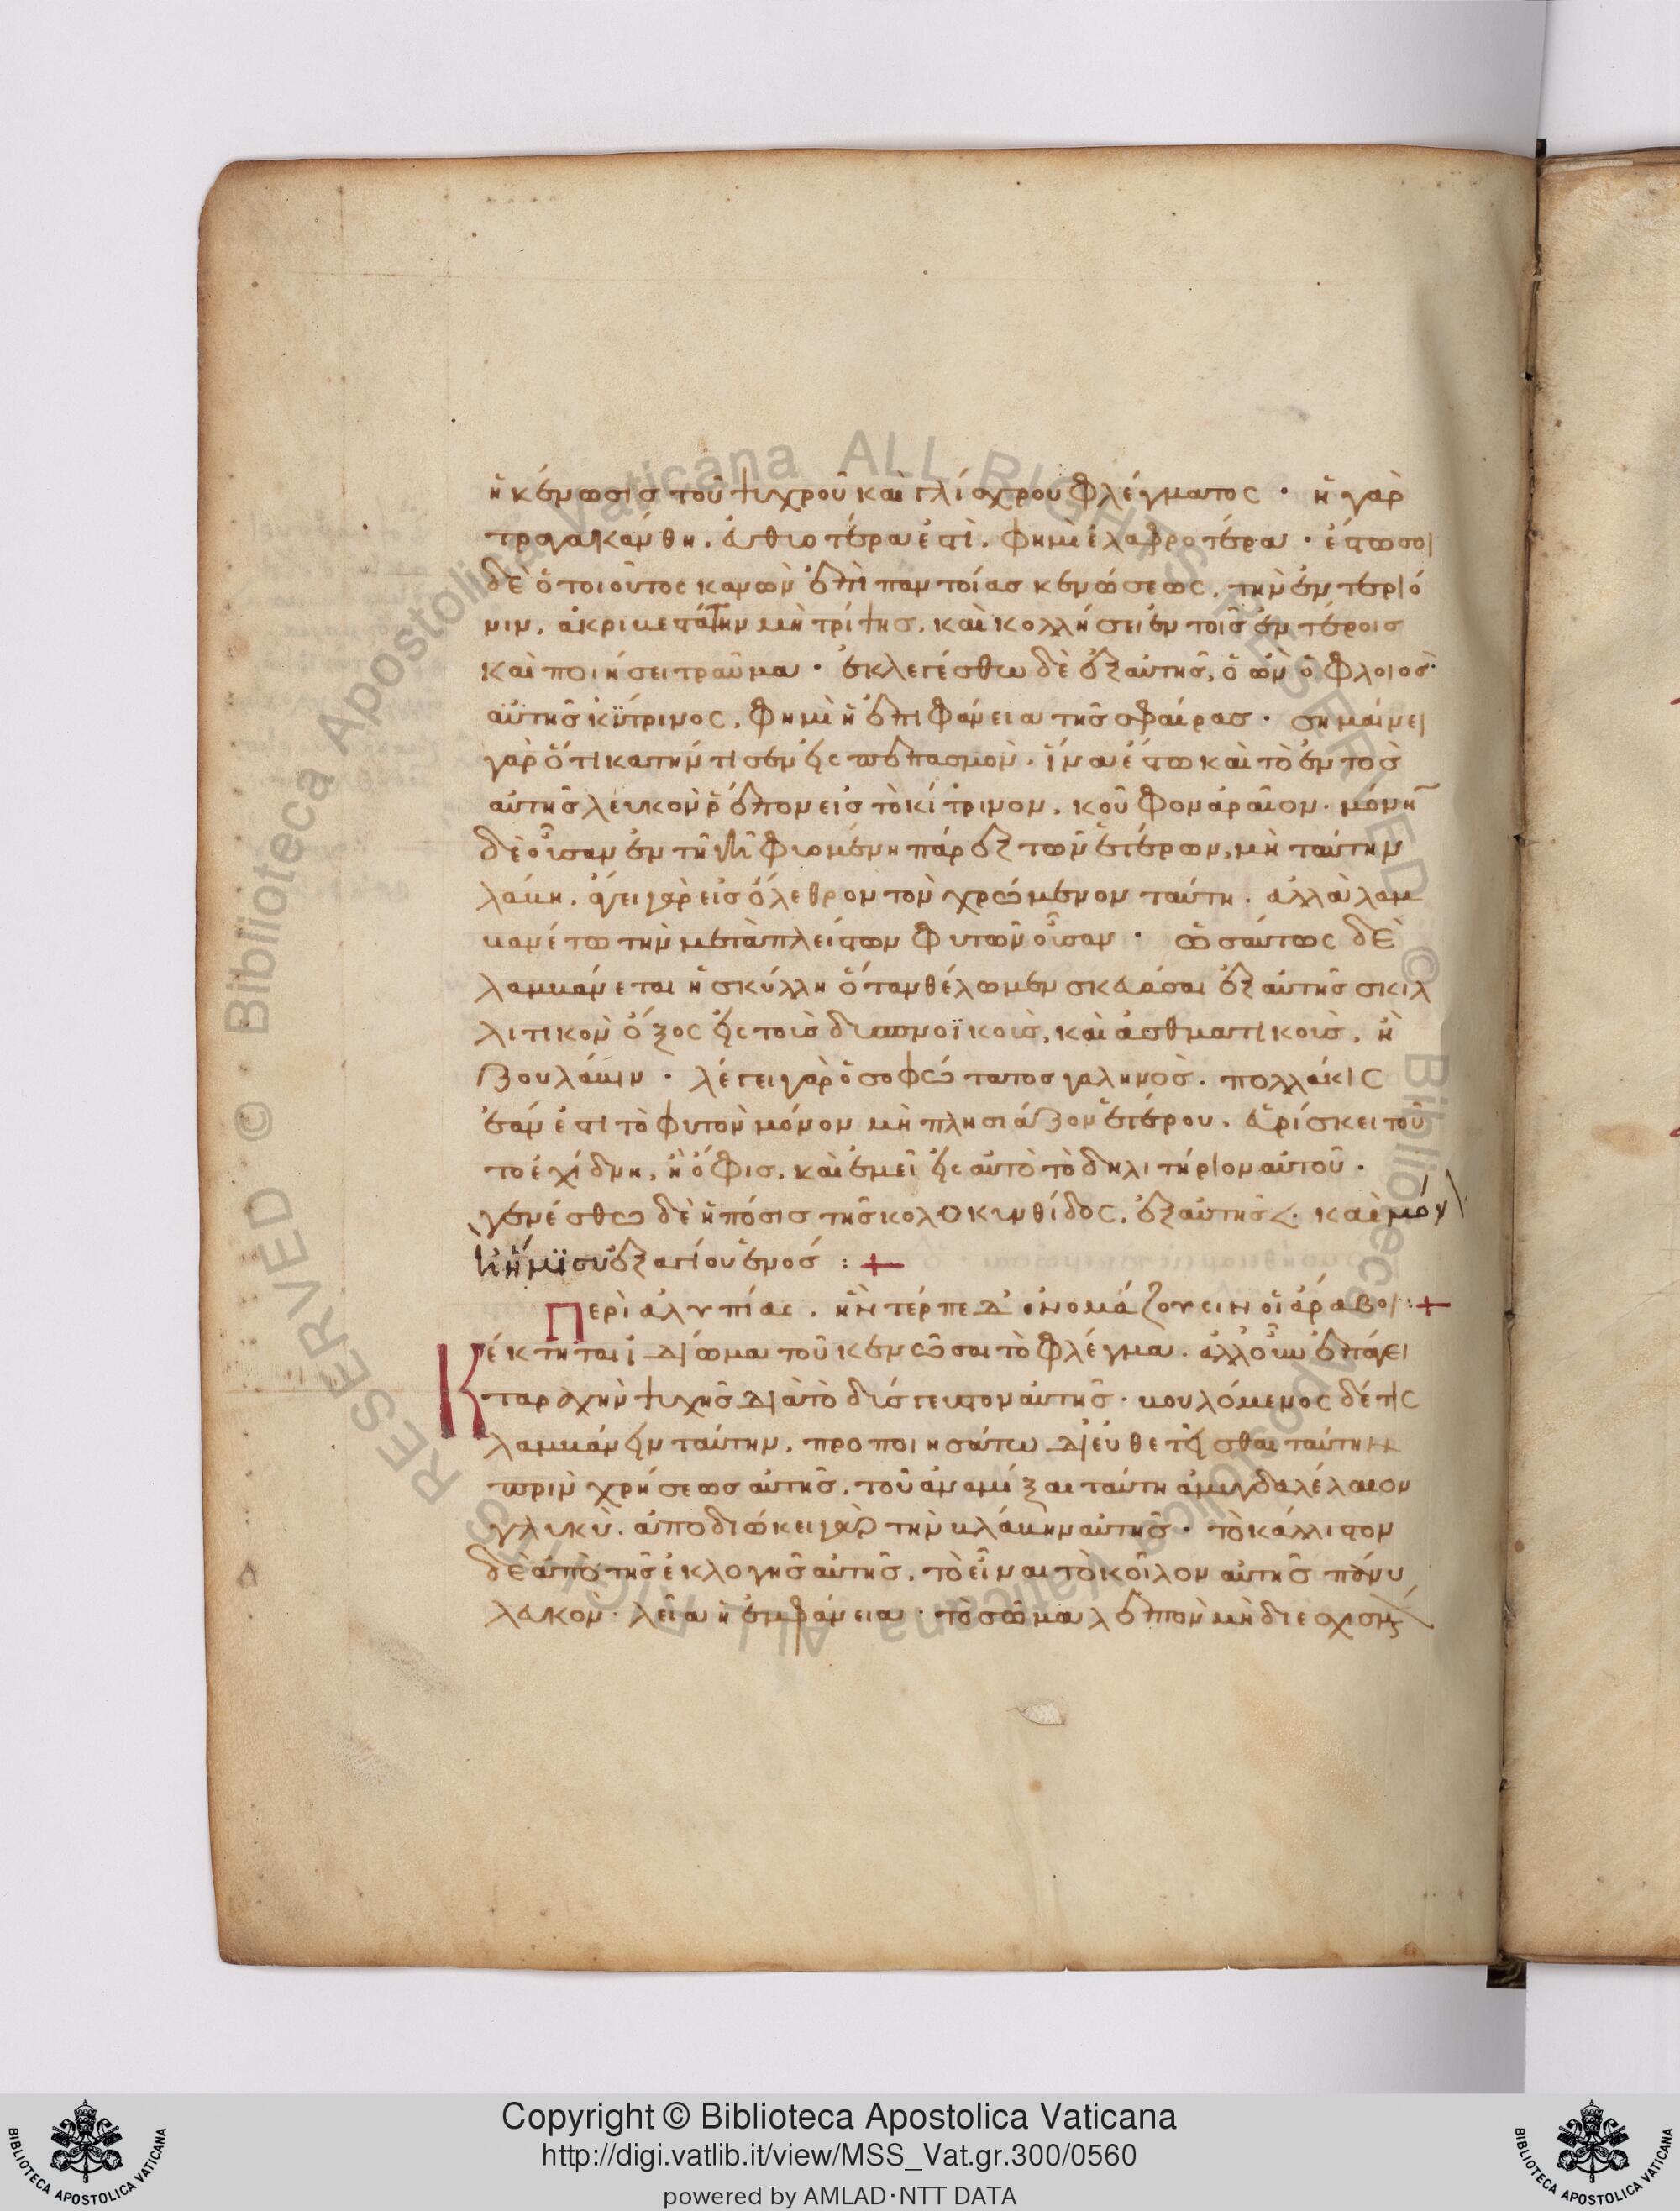 ἡ κένωσις τοῦ ψυχροῦ καὶ γλίσχρου φλέγματος · ἡ γὰρ
τραγακάνθη, εὐθιοτέρα ἐστὶ, φημὶ ἐλαφροτέρα · ἔστω σοι
δὲ ὁ τοιοῦτος κανὼν ἐπὶ παντοίας κενώσεως, τὴν
ἀκριβεστάτην μὴ τρίψης, καὶ κολλήσει ἐν τοῖς ἐντέροις
καὶ ποιήσει τραῦμα · ἐκλεγέσθω δὲ ἐξ αὐτῆς, ὁ ὢν ὁ φλοιὸς
αὐτῆς κύτρινος, φημὶ ἡ ἐπιφάνεια τῆς σφαίρας · σημαίνει
γὰρ ὅτι κατήντισεν εἰς πεπασμὸν · ἵνα ἔστω καὶ τὸ ἐντὸς
αὐτῆς λευκὸν ῥέπον εἰς τὸ κίτρινον, κοῦφον ἀραῖον · μόνην
δὲ οὖσαν ἐν τῇ γῇ φυομένη πάρεξ τῶν ἑτέρων, μὴ ταύτην
λάβη, ἄγει γὰρ εἰς ὄλεθρον τὸν χρώμενον ταύτη · ἀλλὰ λαμ
βανέτω τὴν μετὰ πλείστων φυτῶν οὖσαν · ὡσαύτως δὲ
λαμβάνεται ἡ σκύλλη ὅταν θέλωμεν σκευάσαι ἐξ αὐτῆς σκιλ
λιτικὸν ὄξος εἰς τοὺς δυσπνοϊκοὺς, καὶ ἀσθματικοὺς, ἢ
βουλάπιν · λέγει γὰρ ὁ σοφώτατος γαληνὸς · πολλάκις
ἐὰν ἐστὶ τὸ φυτὸν μόνον μὴ πλησιάζον ἑτέρου, εὑρίσκει τοῦ
το ἐχίδνη, ἢ ὄφις, καὶ ἐμεῖ εἰς αὐτὸ τὸ δηλιτήριον αὐτοῦ ·
γενέσθω δὲ ἡ πόσις τῆς κολοκυνθίδος, ἐξ αὐτῆς · καὶ μόν
ἥμισυ ἐξαγίου ἑνός : +
Περὶ ἀλυπίας, ἣν τέρπεδ ὀνομάζουσιν οἱ άραβοι : +
Κέκτηται ἰδίωμα τοῦ κενῶσαι τὸ φλέγμα · ἀλλ' οὖν ἐπάγει
ταραχὴν ψυχῆς διὰ τὸ δύσγευστον αὐτῆς · βουλόμενος δέ τις
λαμβάνειν ταύτην, προποιησάτω διευθετεῖσθαι ταύτην
πρὶν χρήσεως αὐτῆς, τοῦ ἀναμίξαι ταύτη ἀμυγδαλέλαιον
γλυκὺ · ἀποδιώκει γὰρ τὴν βλάβην αὐτῆς · τὸ κάλλιστον
δὲ ἀπὸ τῆς ἐκλογῆς αὐτῆς, τὸ εἶναι τὸ κοῖλον αὐτῆς πάνυ
λευκὸν · λεῖα ἡ ἐμφάνεια · τὸ σῶμα λεπὸν μὴ
Copyright © Biblioteca Apostolica Vaticana
http://digi.vatlib.it/view/MSS_Vat.gr.300/0560
powered by AMLAD·NTT DATA